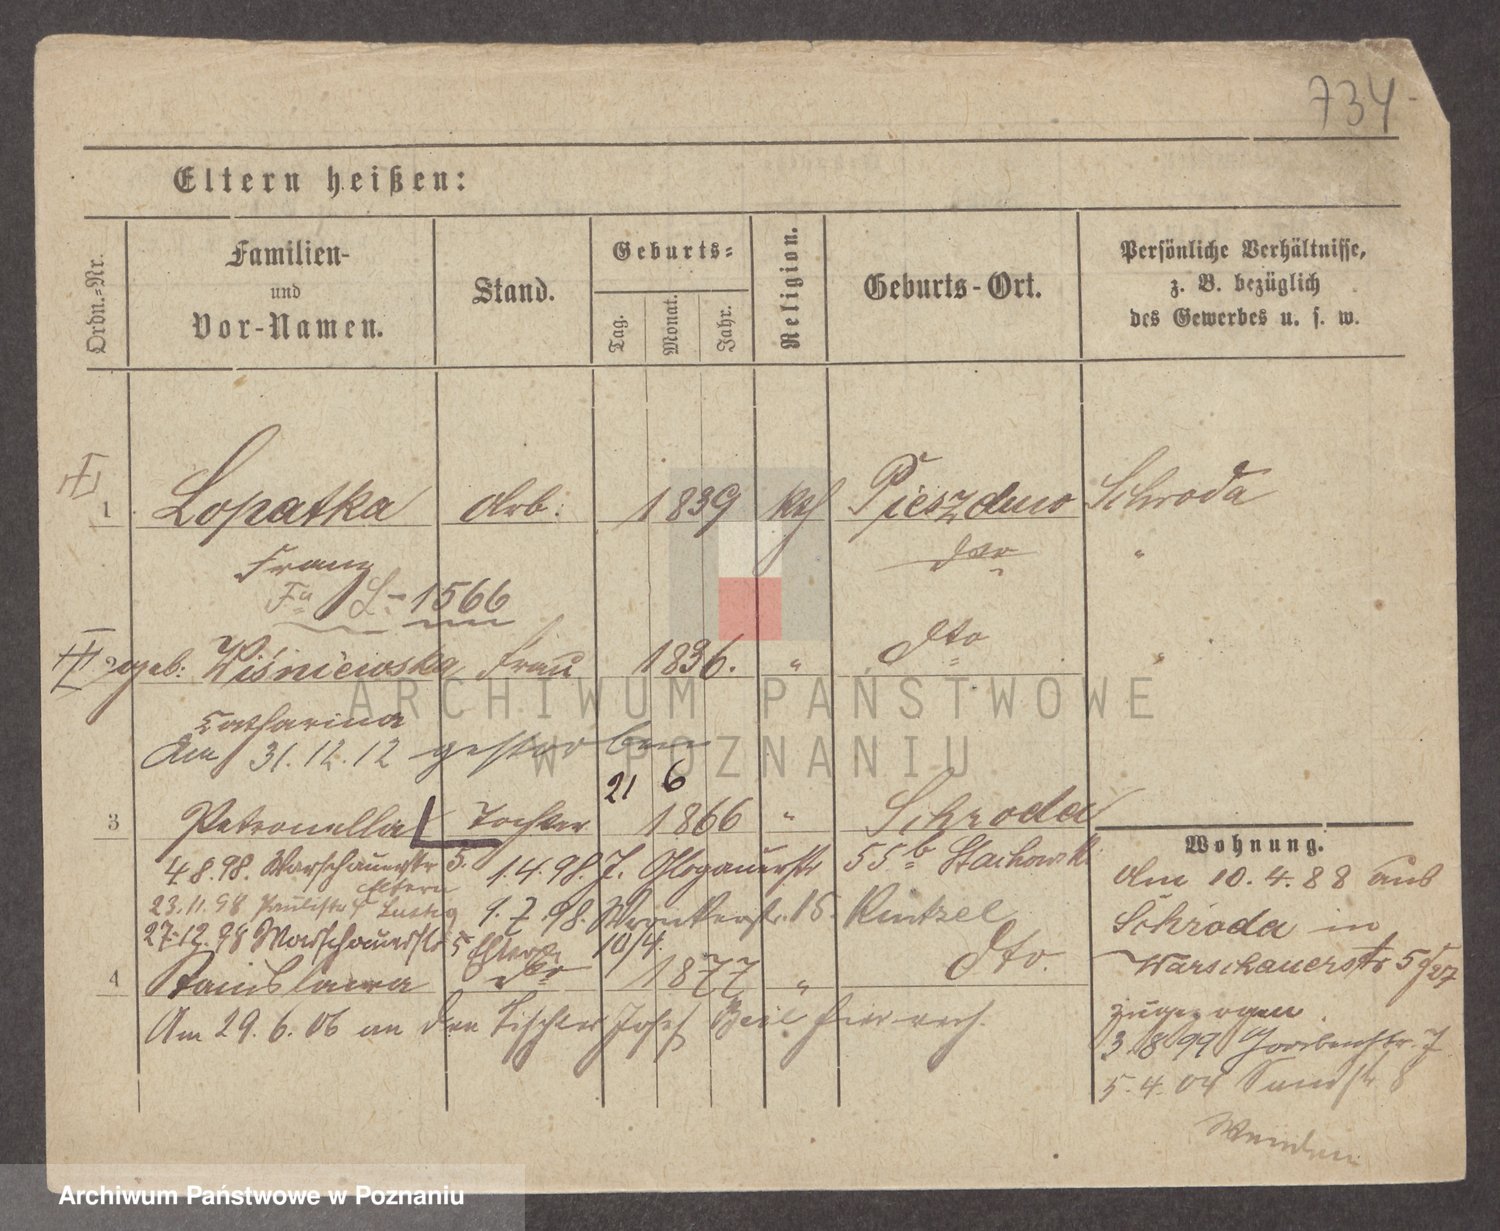 734
Eltern heißen:
Ordn.-Nr.
Familien-
und
Vor-Namen.
Stand.
Geburts-
Tag.
Monat.
Jahr.
Religion.
Geburts-Ort.
Persönliche Verhältnisse,
z. B. bezüglich
des Gewerbes u. s. w.
I
1 Lopatka Arb. 1839 kth Pieszdmo Schroda
Franz dto "
Fa L-1566
II 2 geb. Wiśniewska Frau 1836. " dto "
Catharina
Am 31.12.12 gestorben
21 6
3 Petronella Tochter 1866 " Schroda
4.8.98. Warschauerstr 5. 1.4.98. J. Glogauerstr 55b Stachowsk
Eltern
23.11.98 Paulistr 4 Lustig 1.7.98. 15. Kintzel
27.12.98 Warschauerstr 5 Eltern 10/4.
4 Stanislawa dto 1877 " dto.
Am 29.6.06 an den Tischler Josef Beil hier verh.
Wohnung.
Am 10.4.88 aus
Schroda in
Warschauerstr 5
zugezogen.
3.8.99 7
5.4.04 Sandstr 8
Wenden
ARCHIWUM PAŃSTWOWE
W POZNANIU
Archiwum Państwowe w Poznaniu